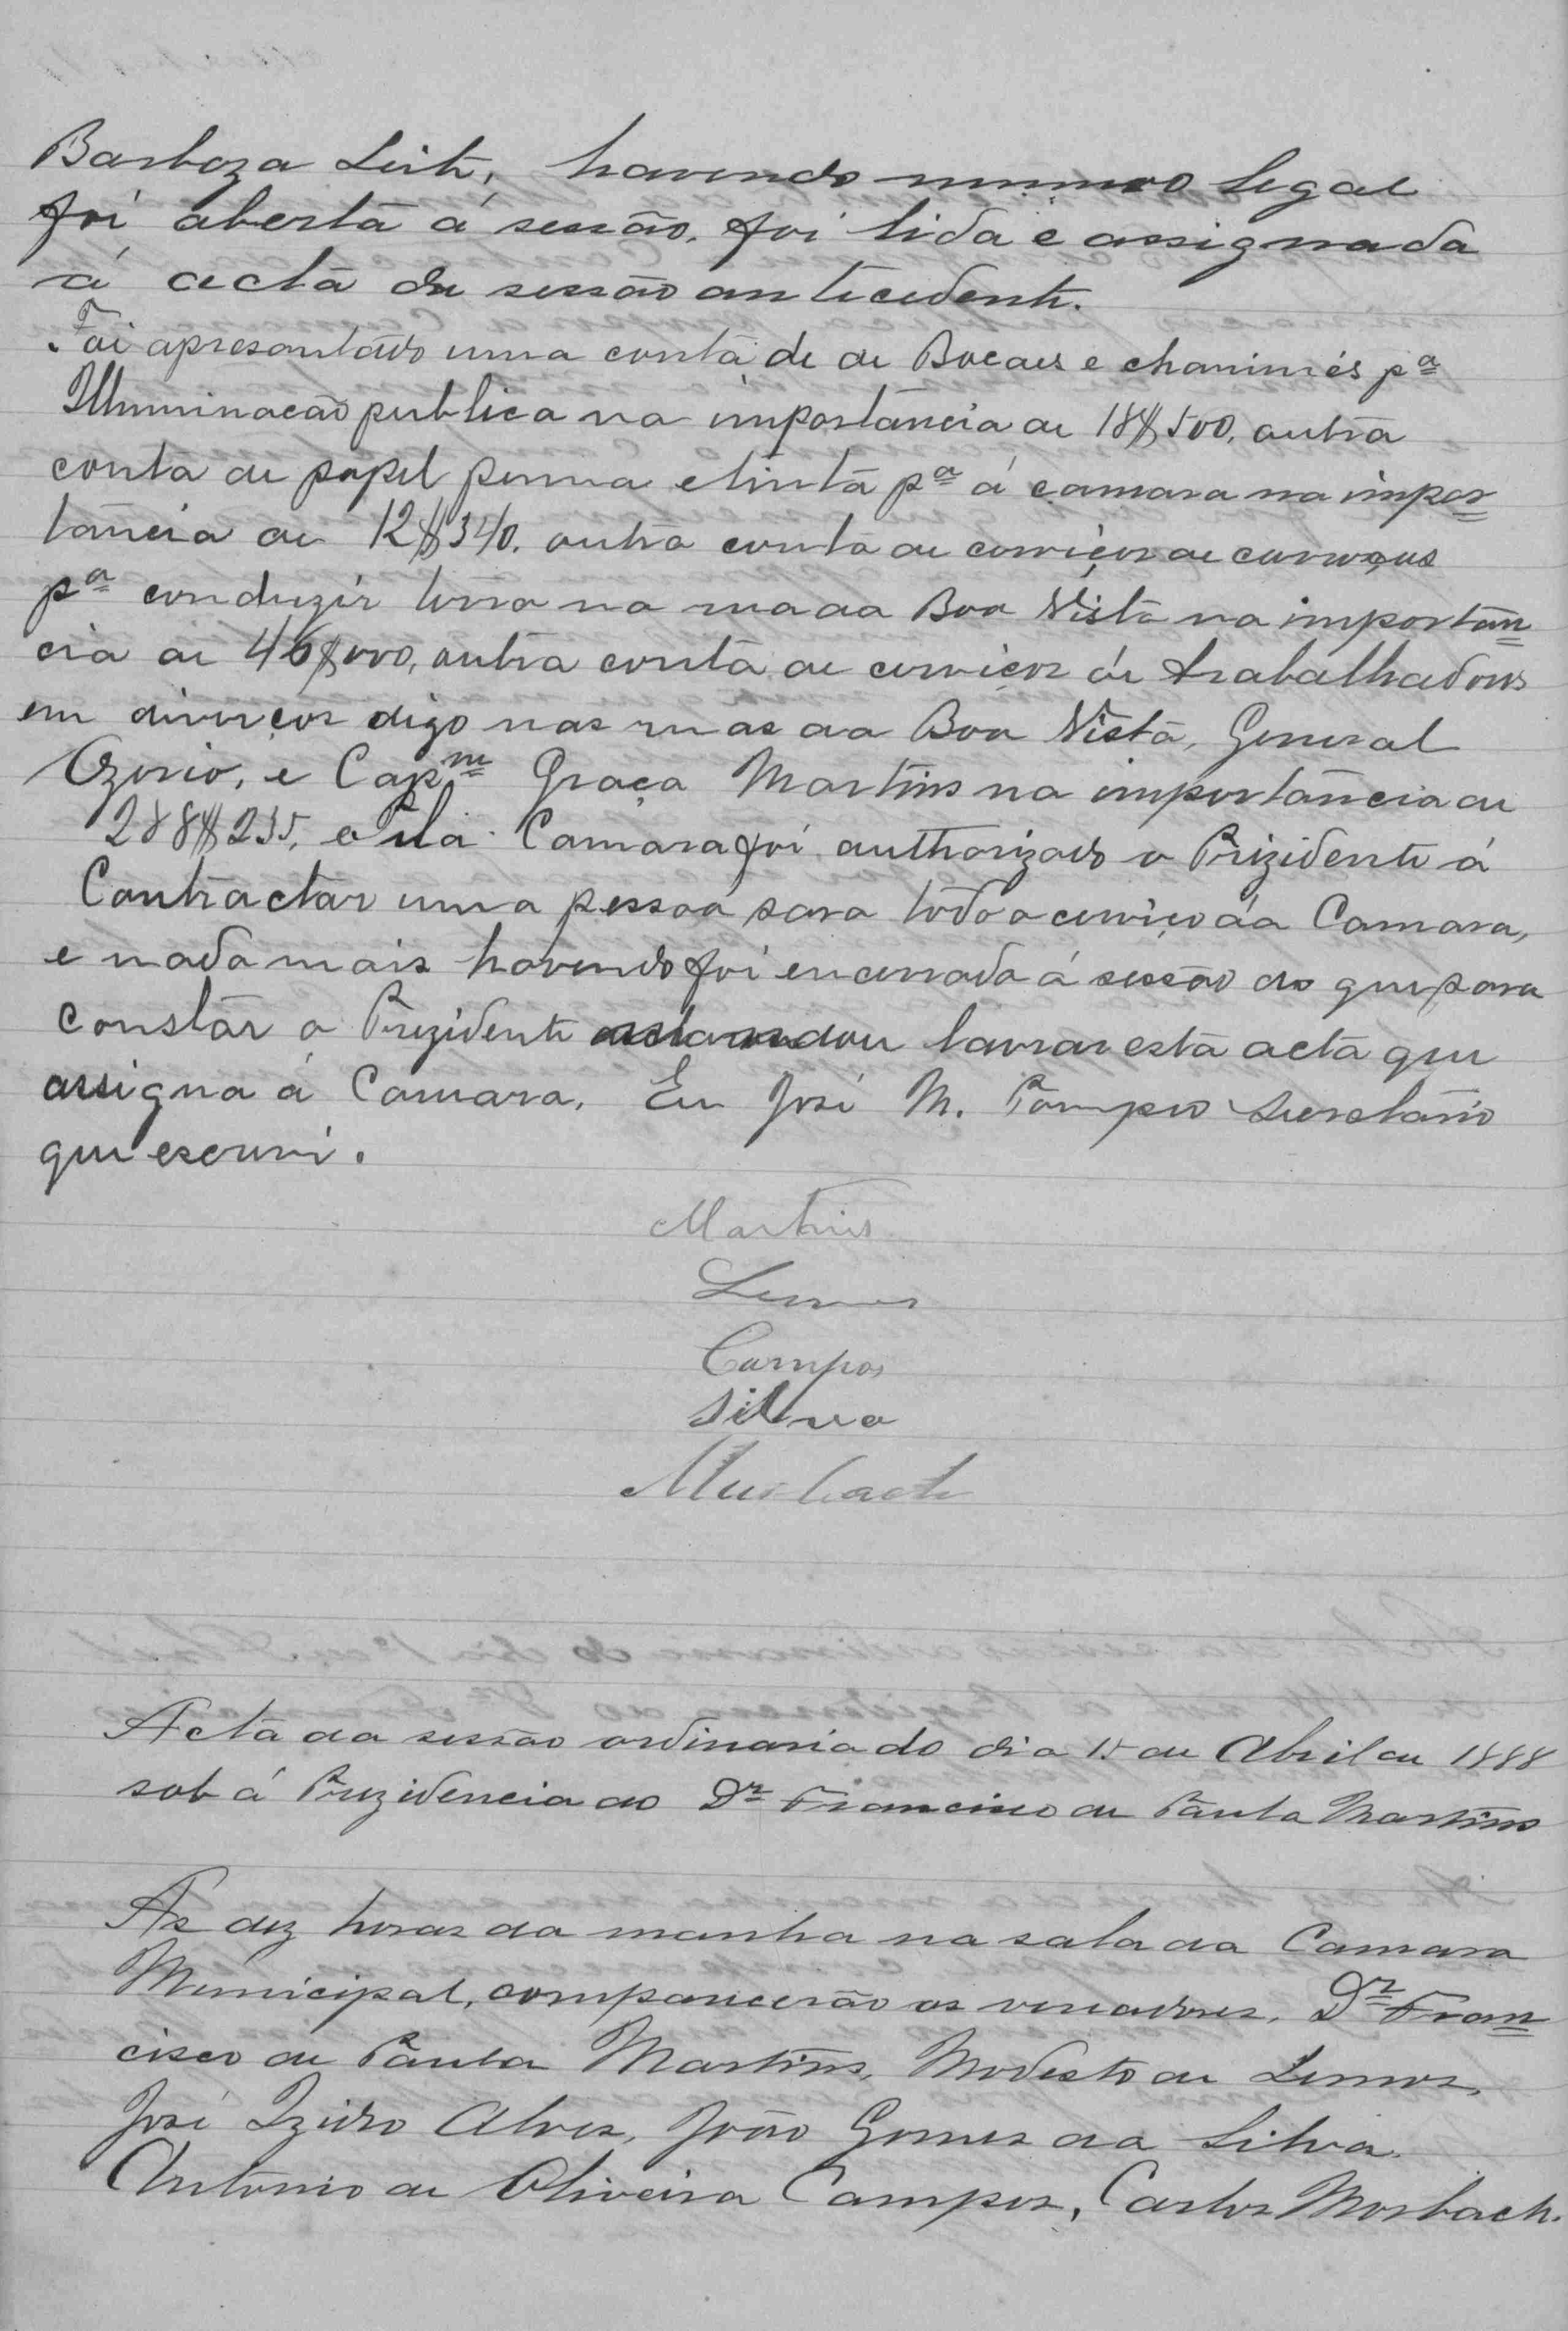 Barboza Leite, havendo numero legal
foi aberta á sessão, foi lida e assignada
á acta da sessão antecedente.
Foi apresentado uma conta de de Bocaes e chaminés pª
Illuminacão publica na importancia de 18$500, outra
conta de papel penna e tinta pª á camara na impor=
tancia de 12$340, outra conta de cerviços de carroças
pª conduzir terra na rua da Boa Vista na importan=
cia de 46$000, outra conta de cerviços de trabalhadores
em diverços digo nas ruas da Boa Vista, General
Ozorio, e Capm Graça Martins na importancia de
288$235, pela Camara foi authorizado o Prezidente á
Contractar uma pessoa para todo o cerviço da Camara,
e nada mais havendo foi encerrada á sessão do que para
constar o Prezidente mandou lavrar esta acta que
assigna á Camara. Eu José M. Pompeo Secretario
que escrevi.
Martins
Lemos
Campos
Silva
Musbach
Acta da sessão ordinaria do dia 15 de Abril de 1888
sob á Prezidencia do Dr Francisco de Paula Martins
As dez horas da manha na sala da Camara
Municipal, comparecerão os vereadores, Dr Fran=
cisco de Paula Martins, Modesto de Lemos,
José Izidro Alves, João Gomes da Silva,
Antonio de Oliveira Campos, Carlos Mosbach.